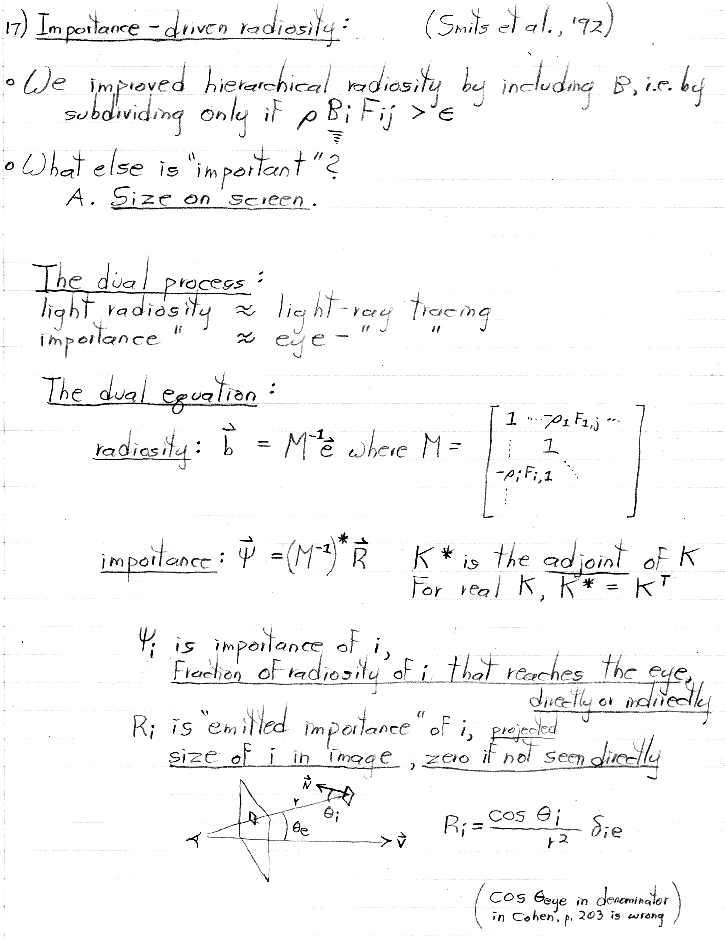 17) Importance-driven radiosity: (Smits et al., '92)
∘ We improved hierarchical radiosity by including B, i.e. by
subdividing only if ρ Bi Fij > ϵ
∘ What else is "important"?
A. Size on screen.
The dual process:
light radiosity ≈ light-ray tracing
importance " ≈ eye - " "
The dual equation:
radiosity: b⃗ = M⁻¹e⃗ where M = [ 1 ⋯ -ρ1 F1,j ⋯
⋮ 1
-ρi Fi,1 ⋱
⋮ ]
importance: Ψ⃗ = (M⁻¹)* R⃗ K* is the adjoint of K
For real K, K* = Kᵀ
Ψi is importance of i,
Fraction of radiosity of i that reaches the eye,
directly or indirectly
Ri is "emitted importance" of i, projected
size of i in image, zero if not seen directly
N⃗
r θi
θe
V⃗
Ri = cos θi / r² δie
(cos θeye in denominator
in Cohen, p. 203 is wrong)